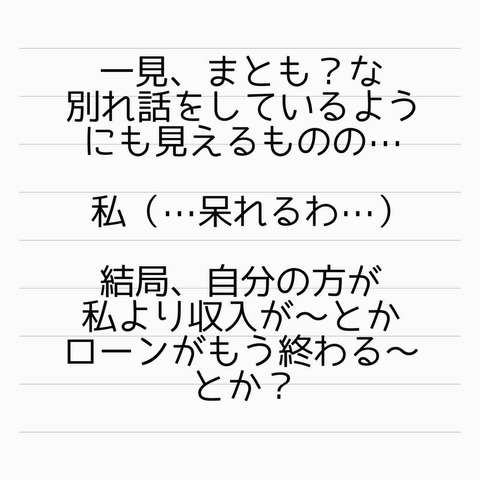 一見、まとも？な
別れ話をしているよう
にも見えるものの…
私（…呆れるわ…）
結局、自分の方が
私より収入が～とか
ローンがもう終わる～
とか？